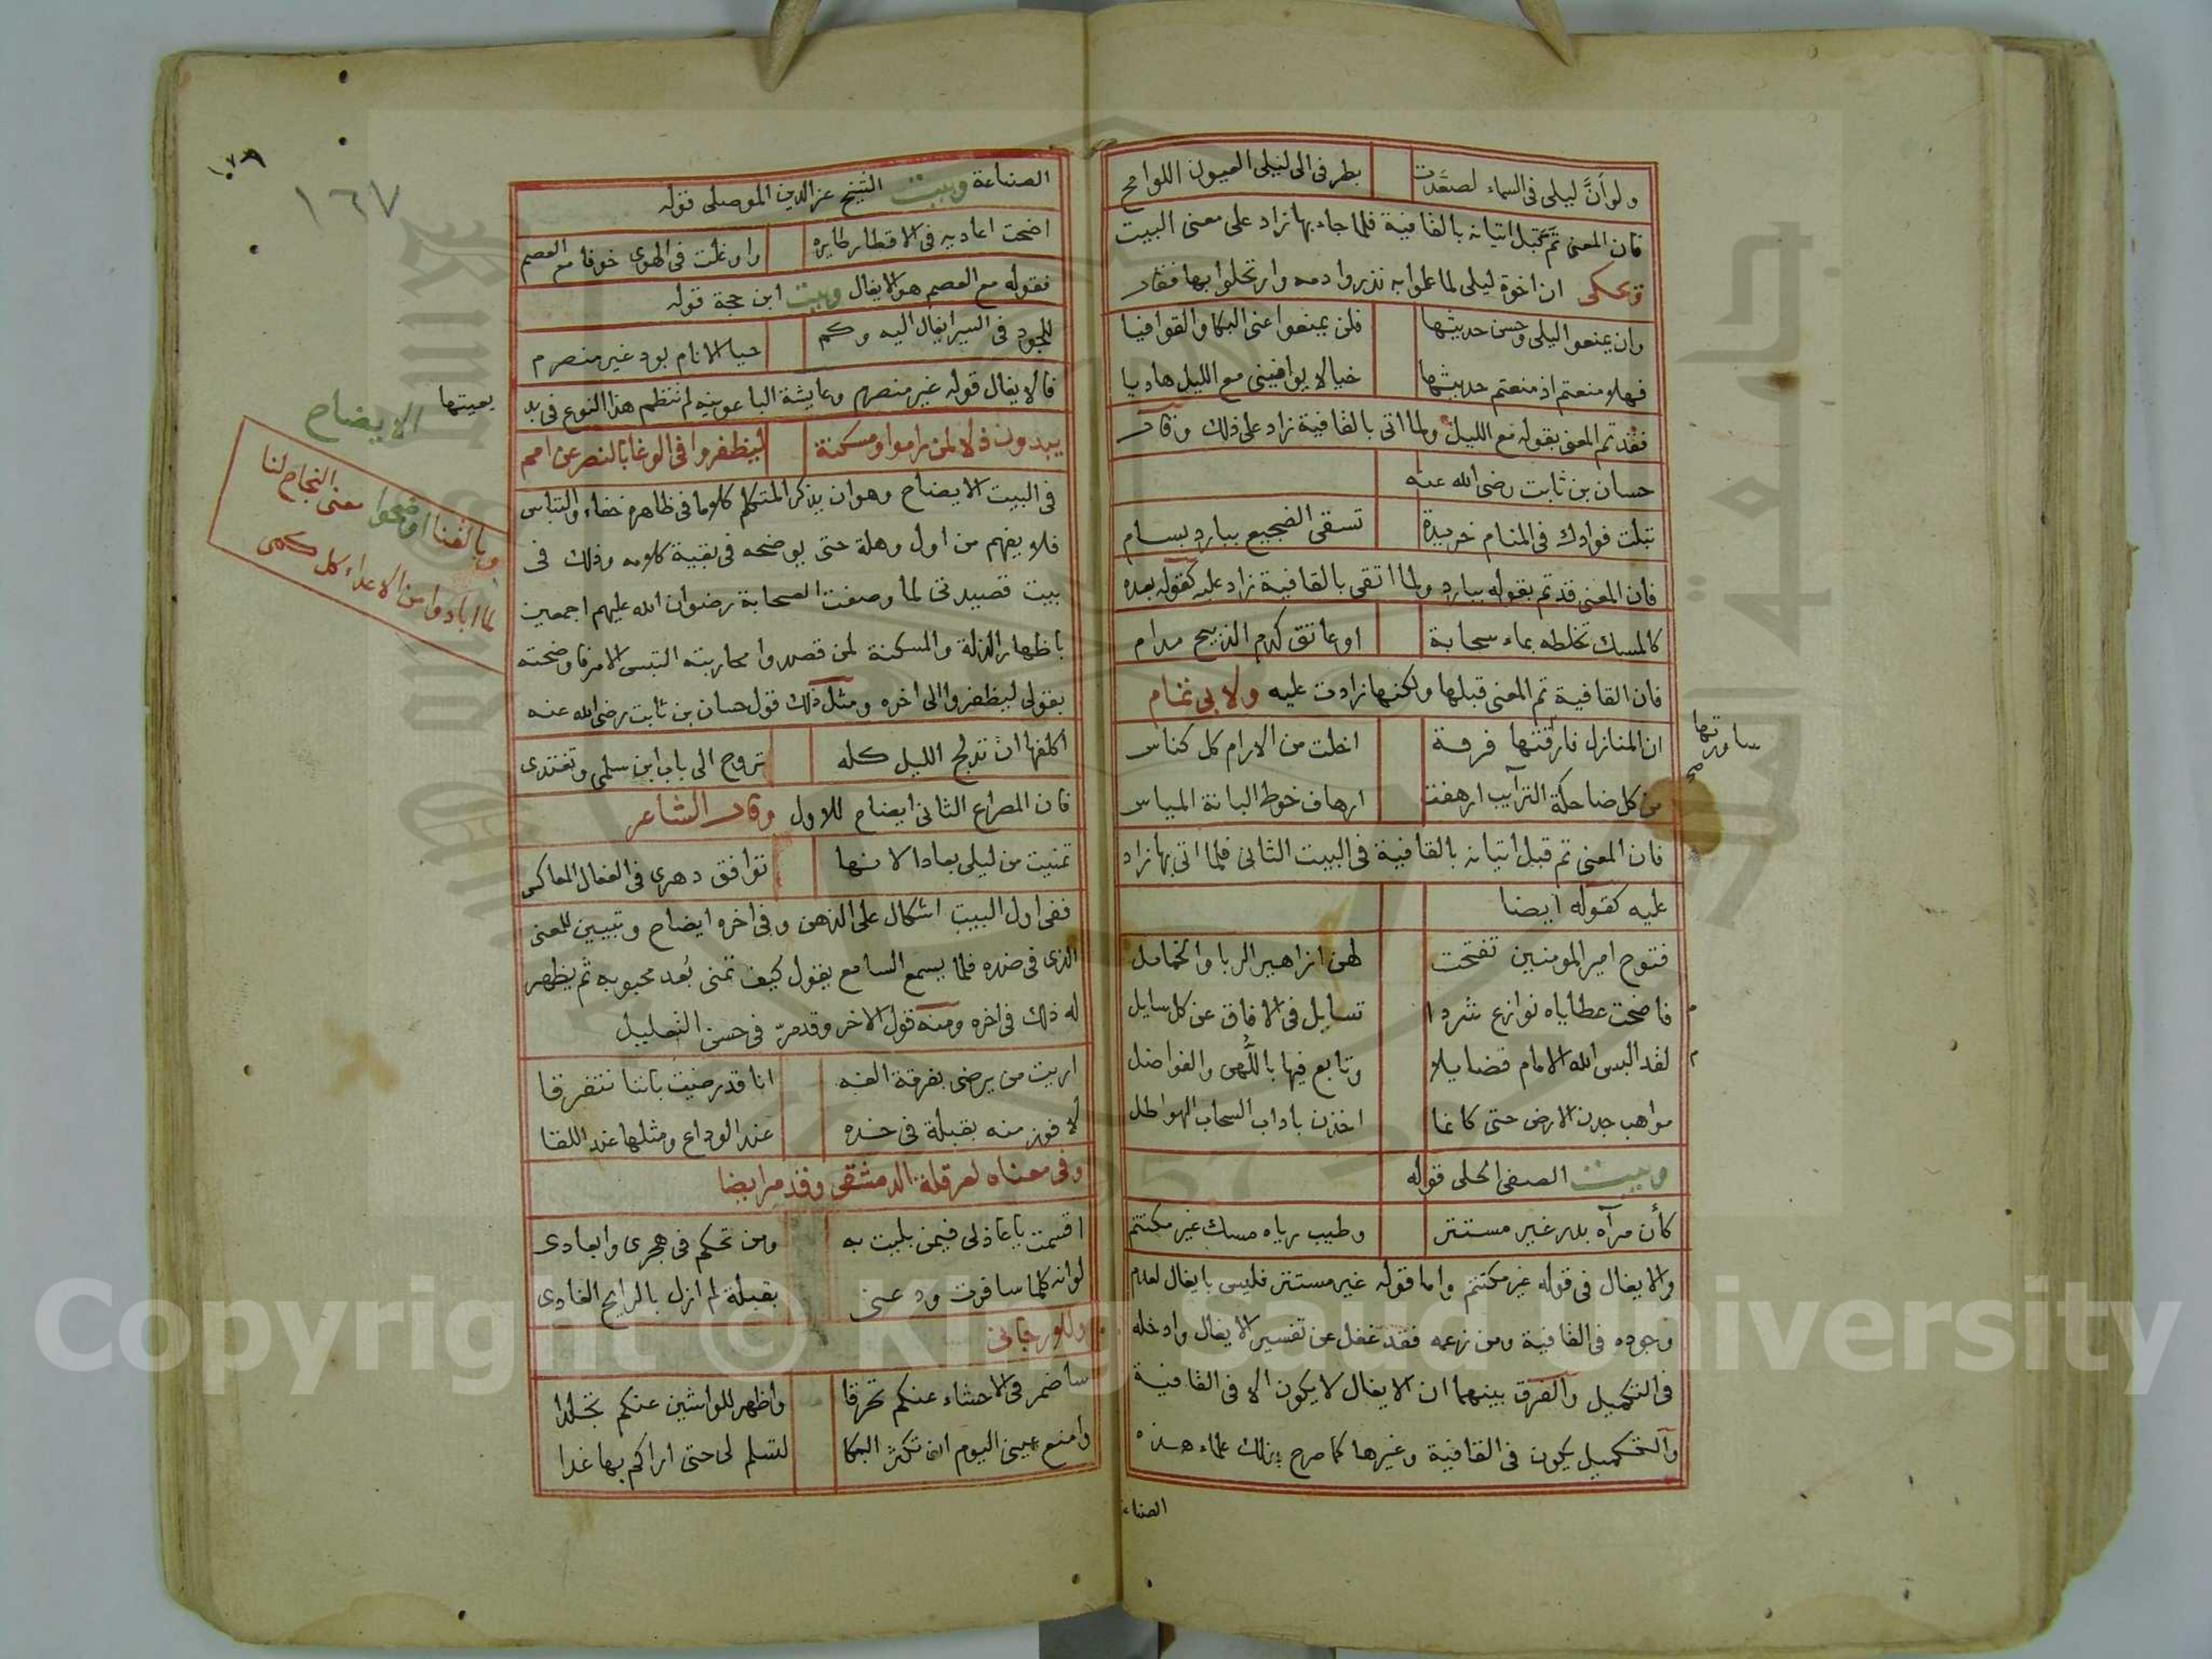 ولو أنَّ ليلى فى السماء لصعّدت بطرفى الى ليلى العيون اللوامح
فان المعنى تم قبل اتيانه بالقافية فلما جاء بها زاد على معنى البيت
ويحكى ان اخوة ليلى لما علموا به نذروا دمه وارتحلوا بها فقال
وان يمنعوا ليلى وحسن حديثها فلن يمنعوا عنى البكا والقوافيا
فهلا منعتم اذ منعتم حديثها خيالا يوافينى مع الليل هاديا
فقد تم المعنى بقوله مع الليل ولما اتى بالقافية زاد على ذلك وقال
حسان بن ثابت رضى الله عنه
تبلت فوادك فى المنام خريدة تسقى الضجيع ببارد بسام
فان المعنى قد تم بقوله ببارد ولما اتى بالقافية زاد عليه كقوله بعده
كالمسك تخلطه بماء سحابة او عاتق كدم الذبيح مدام
فان القافية تم المعنى قبلها ولكنها زادت عليه ولابى تمام
ان المنازل فارقتها فرقة اخلت من الارام كل كناس
ساورتها
من كل ضاحكة الترآيب ارهفت ارهاف خوط البانة المياس
فان المعنى تم قبل اتيانه بالقافية فى البيت الثانى فلما اتى بها زاد
عليه كقوله ايضا
فتوح امير المومنين تفتحت لهن ازاهير الربا والخمامل
فاضحت عطاياه نوازع شردا تسايل فى الافاق عن كل سايل
لقد البس الله الامام فضايلا وتابع فيها باللُّهى والفواضل
مواهب جدن الارض حتى كانما اخذن باداب السحاب الهواطل
وبيت الصفى الحلى قوله
كأن مرآه بدر غير مستتر وطيب رياه مسك غير مكتتم
والايغال فى قوله غير مكتتم واما قوله غير مستتر فليس بايغال لعدم
وجوده فى القافية ومن زعمه فقد غفل عن تفسير الايغال وادخله
فى التكميل والفرق بينهما ان الايغال لا يكون الا فى القافية
والتكميل يكون فى القافية وغيرها كما صرح بذلك علماء هذه
الصناعة
١٦٧
الصناعة وبيت الشيخ عز الدين الموصلى قوله
اضحت اعاديه فى الاقطار طايره واوغلت فى الهوى خوفا مع العصم
فقوله مع العصم هو الايغال وبيت ابن حجة قوله
للجود فى السير ايغال اليه وكم حبا الانام بود غير منصرم
فالايغال قوله غير منصرم وعايشة الباعونيه لم تنظم هذا النوع فى بد
يعيتها
الايضاح
يبدون ذلا لمن راموا ومسكنة ليظفروا فى الوغا بالنصر عن امم
فى البيت الايضاح وهو ان يذكر المتكلم كلاما فى ظاهره خفاء والتباس
فلا يفهم من اول وهلة حتى يوضحه فى بقية كلامه وذلك فى
بيت قصيدتى لما وصفت الصحابة رضوان الله عليهم اجمعين
باظهار الذلة والمسكنة لمن قصدوا محاربته التبس الامر فاوضحته
بقولى ليظفروا الى اخره ومثل ذلك قول حسان بن ثابت رضى الله عنه
وبالفنا اوضحوا معنى النجاح لنا
لما ابادوا من الاعداء كل كمى
اكلفها ان تدلج الليل كله تروح الى باب ابن سلمى وتغتدى
فان المصراع الثانى ايضاح للاول وقال الشاعر
تمنيت من ليلى بعادا لانها توافق دهرى فى الفعال المعاكس
ففى اول البيت اشكال على الذهن وفى اخره ايضاح وتبيين للمعنى
الذى فى ضده فلما يسمع السامع يقول كيف تمنى بُعد محبوبه ثم يظهر
له ذلك فى اخره ومنه قول الاخر وقد مرّ فى حسن التعليل
اريت من يرضى بفرقة الفه انا قد رضيت باننا نتفرقا
لافوز منه بقبلة فى خده عند الوداع ومثلها عند اللقا
وفى معناه لعرقلة الدمشقى وقد مر ايضا
اقسمت يا عاذلى فيمن بليت به ومن تحكم فى هجرى وابعادى
لو انه كلما سافرت ودعنى بقبلة لم ازل بالرايح الغادى
وللارجانى
ساضمر فى الاحشاء عنكم تحرقا واظهر للواشين عنكم تجلدا
وامنع عينى اليوم ان تكثر البكا لتسلم لى حتى اراكم بها غدا
Copyright © King Saud University
1957